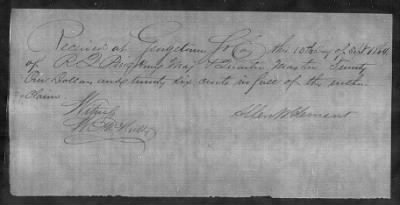 Received at Georgetown this 10th day of Oct 1864
of R D Maj & Quarter Master Twenty
Five Dollars and twenty six cents in full of the within
Claim
Witness
Allen Clement